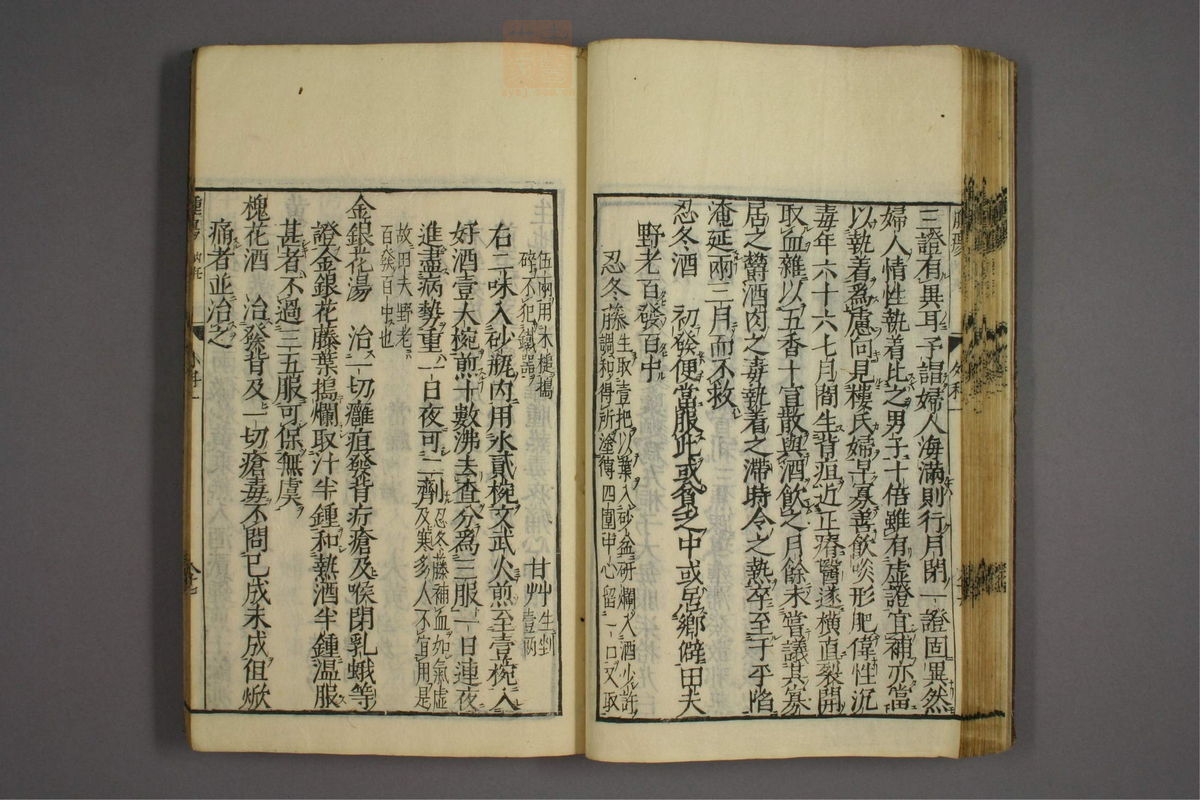 三證有異耳予謂婦人海滿則行月閉一證固異然
婦人情性執着比之男子十倍雖有虛證宜補亦當
以執着爲慮向見樓氏婦早寡善飲啖形肥偉性沉
毒年六十六七月間生背疽近正脊醫遂橫直裂開
取血雜以五香十宣散與酒飲之月餘未嘗議其寡
居之欝酒肉之毒執着之滯時令之熱卒至于平陷
淹延兩三月而不救
忍冬酒　初發便當服此或貧乏中或居鄉僻田夫
野老百發百中
忍冬藤生取壹把以葉入砂盆研爛入酒少許
調和得所塗傅四圍中心留一口又取
伍兩用木槌搗
碎不犯鐵器
甘艸生剉
壹兩
右二味入砂瓶內用水貳椀文武火煎至壹椀入
好酒壹大椀煎十數沸去查分爲三服一日連夜
進盡病勢重一日夜可二劑忍冬藤補血如氣虛
及寒多人不宜用是
故田夫野老
百發百中也
金銀花湯　治一切癰疽發背疔瘡及喉閉乳蛾等
證金銀花藤葉搗爛取汁半鍾和熱酒半鍾溫服
甚者不過三五服可保無虞
槐花酒　治發背及一切瘡毒不問已成未成但焮
痛者並治之